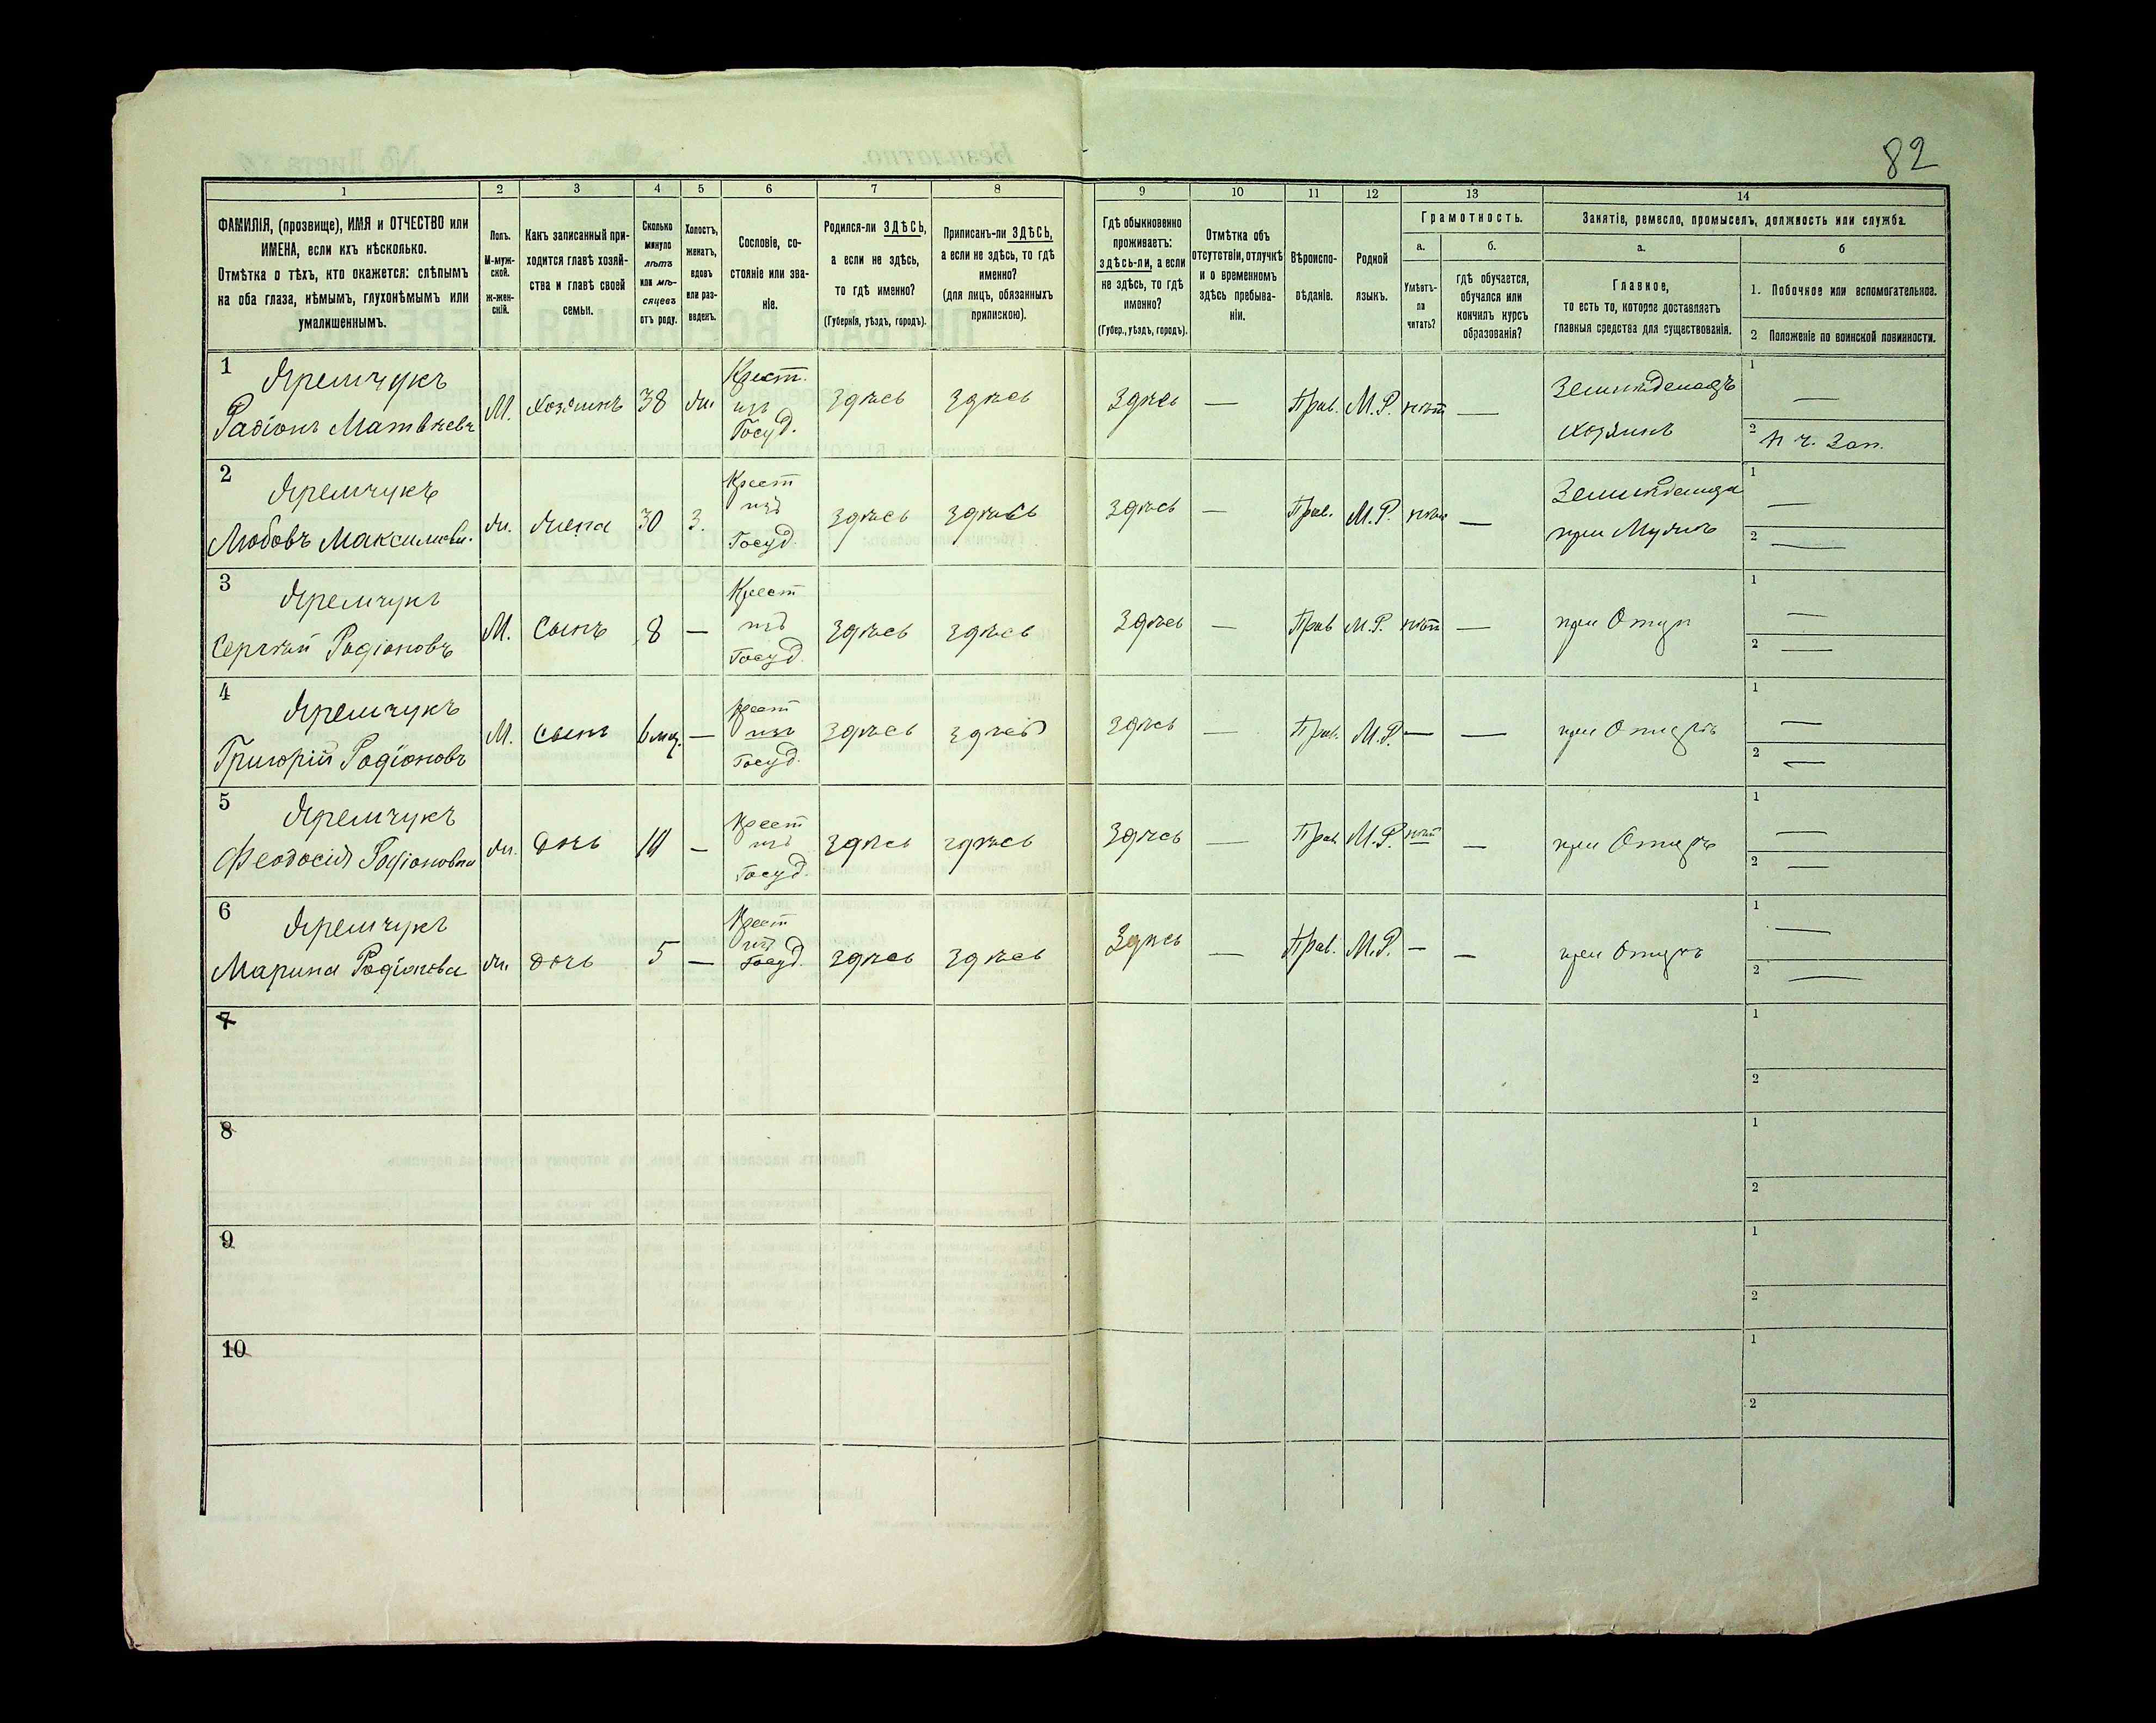 82
1 2 3 4 5 6 7 8 9 10 11 12 13 14
ФАМИЛІЯ, (прозвище), ИМЯ и ОТЧЕСТВО или
ИМЕНА, если ихъ нѣсколько.
Отмѣтка о тѣхъ, кто окажется: слѣпымъ
на оба глаза, нѣмымъ, глухонѣмымъ или
умалишеннымъ.
Полъ.
М-муж-
ской.
Ж-жен-
скій.
Какъ записанный при-
ходится главѣ хозяй-
ства и главѣ своей
семьи.
Сколько
минуло
лѣтъ
или мѣ-
сяцевъ
отъ роду.
Холостъ,
женатъ,
вдовъ
или раз-
веденъ.
Сословіе, со-
стояніе или зва-
ніе.
Родился-ли ЗДѢСЬ,
а если не здѣсь,
то гдѣ именно?
(Губернія, уѣздъ, городъ).
Приписанъ-ли ЗДѢСЬ,
а если не здѣсь, то гдѣ
именно?
(для лицъ, обязанныхъ
припискою).
Гдѣ обыкновенно
проживаетъ:
здѣсь-ли, а если
не здѣсь, то гдѣ
именно?
(Губер., уѣздъ, городъ).
Отмѣтка объ
отсутствіи, отлучкѣ
и о временномъ
здѣсь пребыва-
ніи.
Вѣроиспо-
вѣданіе.
Родной
языкъ.
Грамотность.
а.
Умѣетъ-
ли
читать?
б.
гдѣ обучается,
обучался или
кончилъ курсъ
образованія?
Занятіе, ремесло, промыселъ, должность или служба.
а.
Главное,
то есть то, которое доставляетъ
главныя средства для существованія.
б
1. Побочное или вспомогательное.
2 Положеніе по воинской повинности.
1 Яремчукъ
Радіонъ Матвѣевъ М. Хозяинъ 38 Ж. Крест. изъ Госуд. Здѣсь Здѣсь Здѣсь — Прав. М.Р. нѣтъ — Земледѣлецъ хозяинъ 1 — 2 Н ч. Зап.
2 Яремчукъ
Любовь Максимова. Ж. Жена 30 З. Крест изъ Госуд. Здѣсь Здѣсь Здѣсь — Прав. М.Р. нѣтъ — при Мужѣ 1 — 2 —
3 Яремчукъ
Сергѣй Радіоновъ М. Сынъ 8 — Крест изъ Госуд. Здѣсь Здѣсь Здѣсь — Прав М.Р. нѣтъ — при Отцѣ 1 — 2 —
4 Яремчукъ
Григорій Радіоновъ М. Сынъ 6 мц. — Крест изъ Госуд. Здѣсь Здѣсь Здѣсь — Прав. М.Р. — — при Отцѣ 1 — 2 —
5 Яремчукъ
Феодосія Радіоновна Ж. Дочь — Крест изъ Госуд. Здѣсь Здѣсь Здѣсь — Прав. М.Р. нѣтъ — при Отцѣ 1 — 2 —
6 Яремчукъ
Марина Радіонова Ж. Дочь 5 — Крест изъ Госуд. Здѣсь Здѣсь Здѣсь — Прав. М.Р. — — при Отцѣ 1 — 2 —
7 1
2
8 1
2
9 1
2
10 1
2